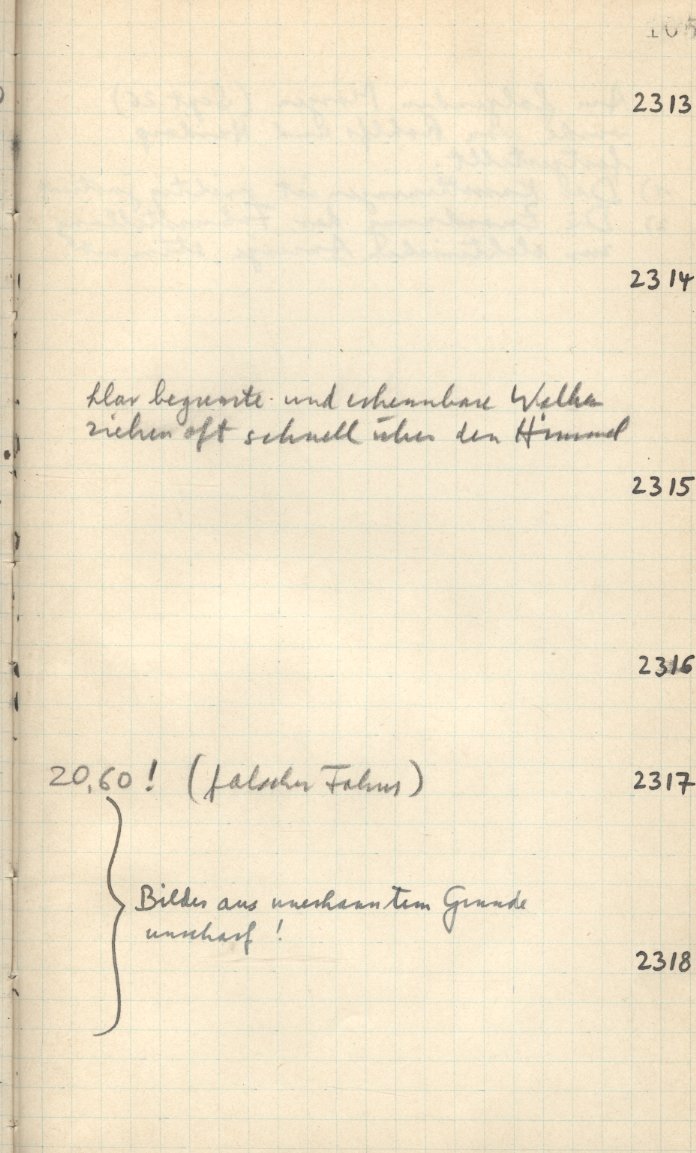 105
2313
2314
klar begrenzte und erkennbare Wolken
ziehen oft schnell über den Himmel
2315
2316
20,60! (falscher Fokus) 2317
Bilder aus unerkanntem Grunde
unscharf!
2318